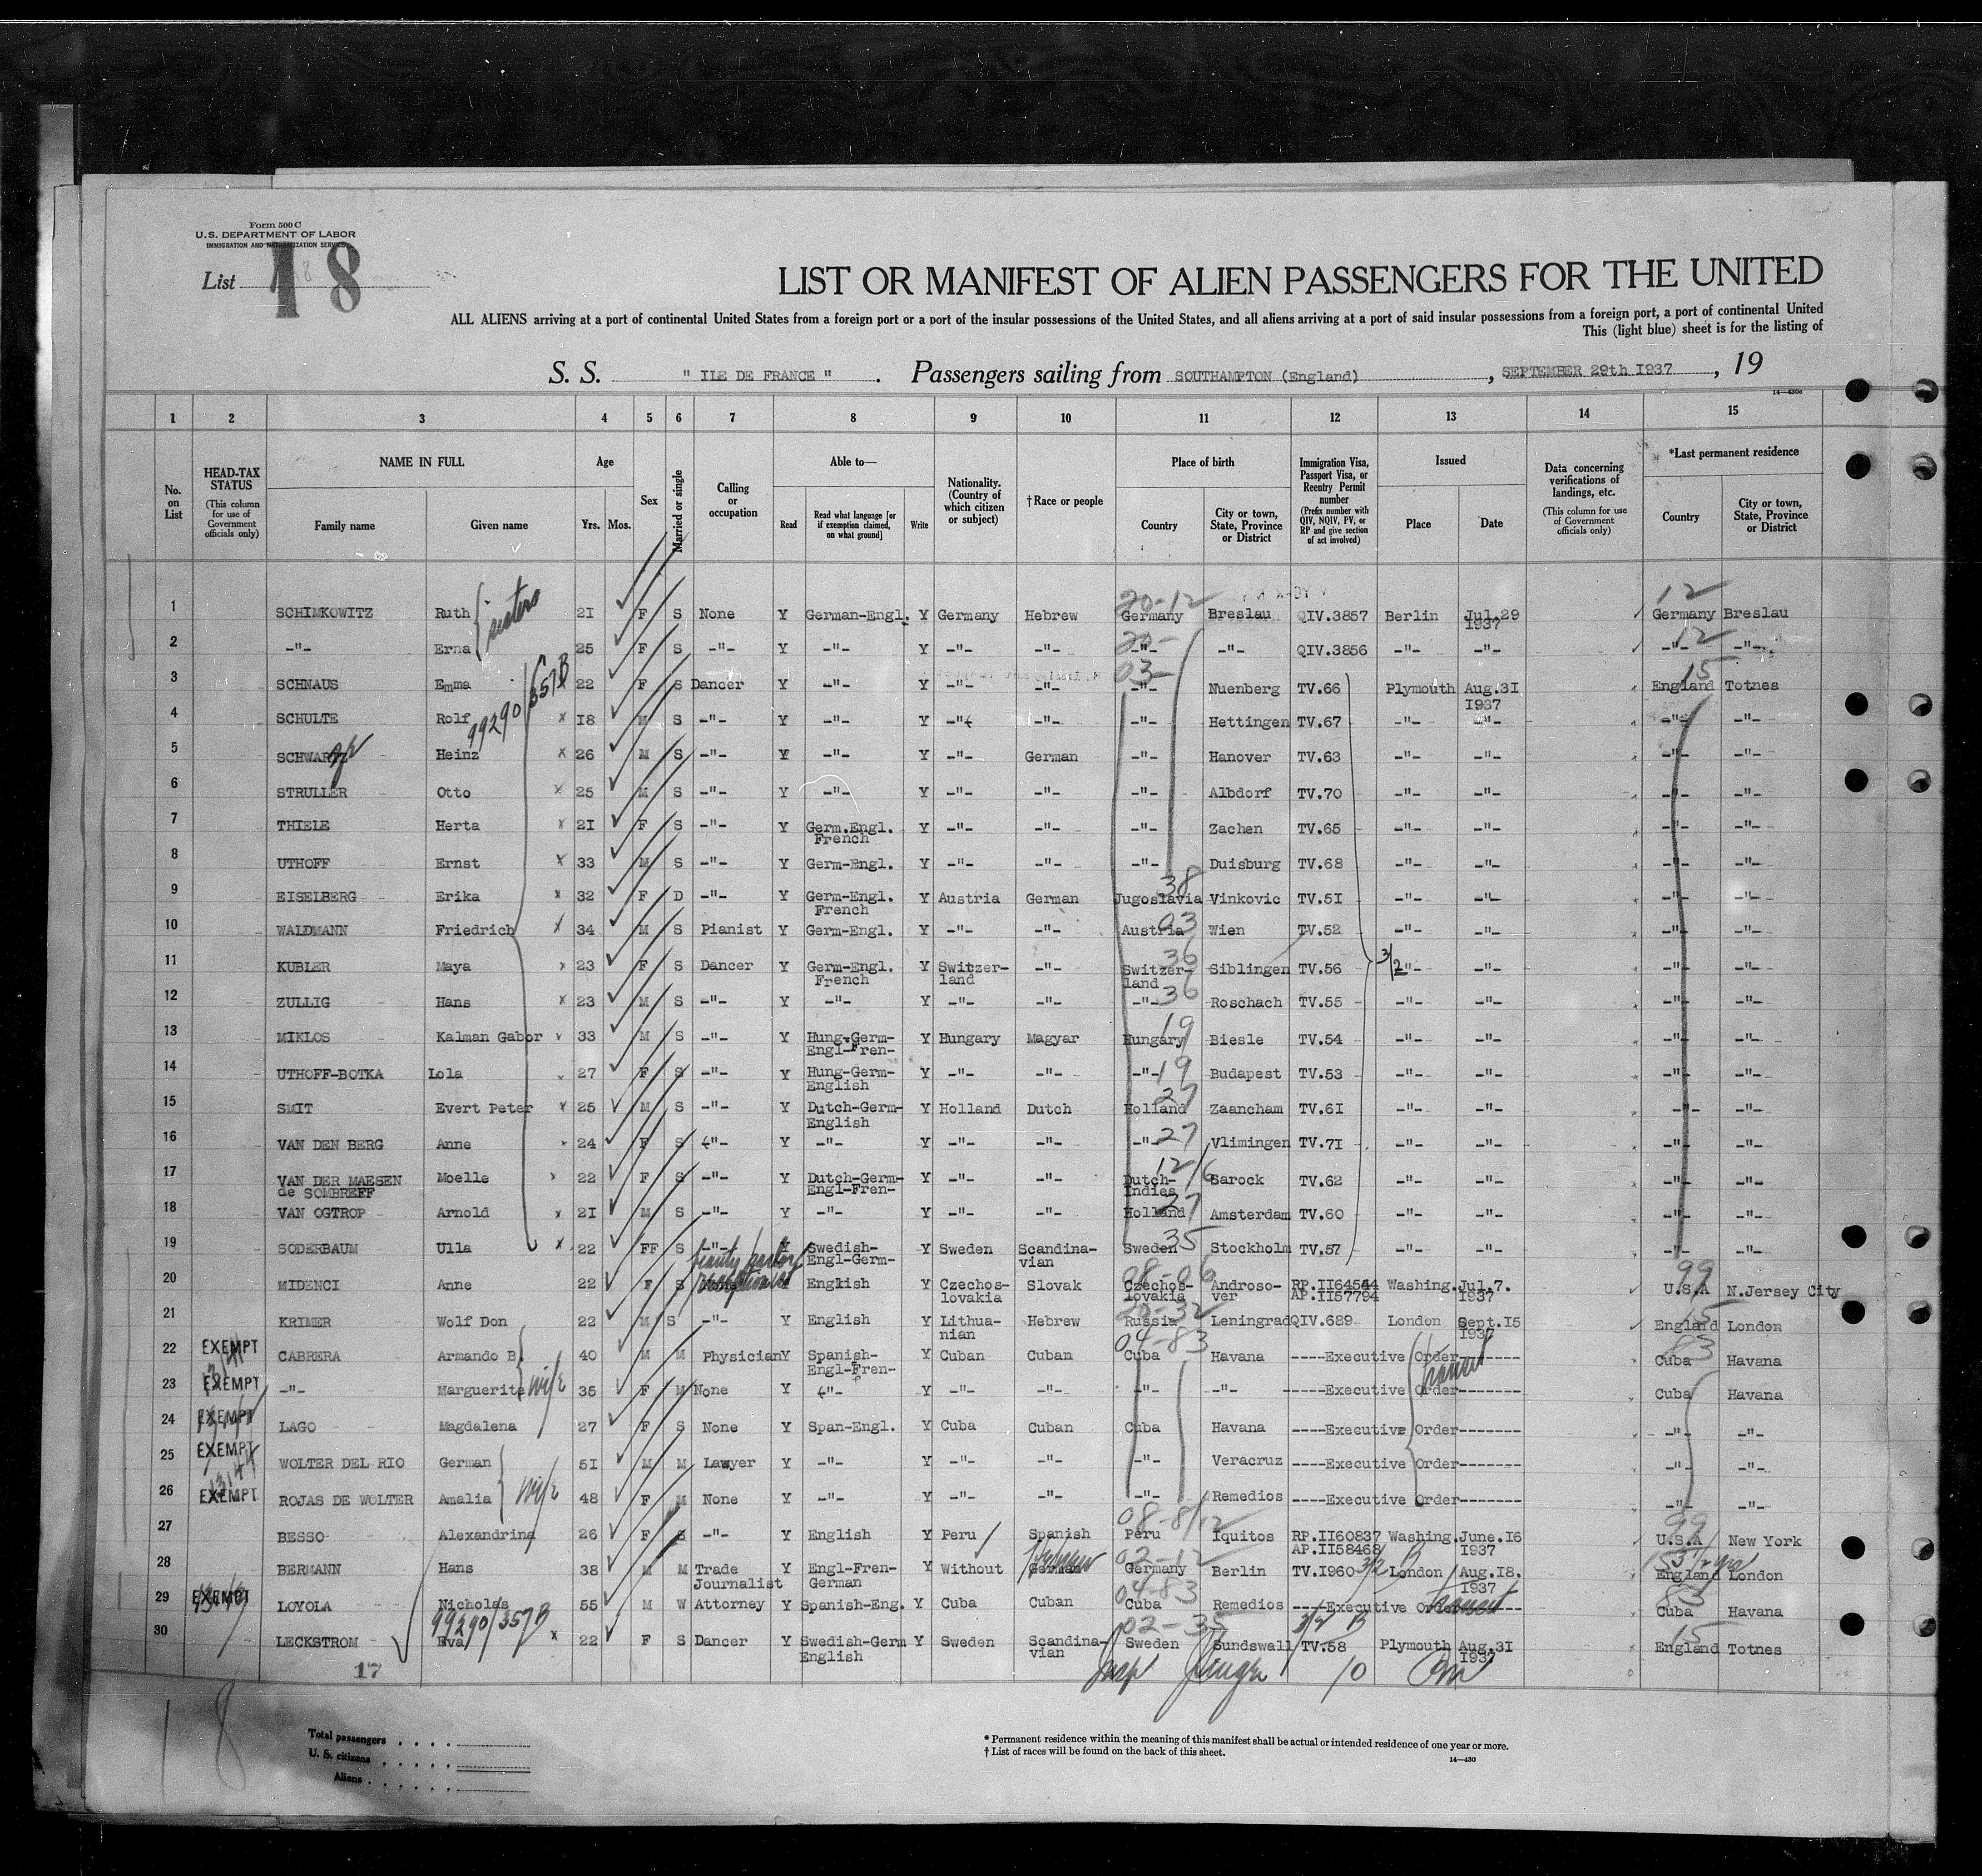 Form 500 C
U.S. DEPARTMENT OF LABOR
IMMIGRATION AND NATURALIZATION SERVICE
List 18
LIST OR MANIFEST OF ALIEN PASSENGERS FOR THE UNITED
ALL ALIENS arriving at a port of continental United States from a foreign port or a port of the insular possessions of the United States, and all aliens arriving at a port of said insular possessions from a foreign port, a port of continental United
This (light blue) sheet is for the listing of
S. S. " ILE DE FRANCE " . Passengers sailing from SOUTHAMPTON (England) , SEPTEMBER 29th 1937 , 19
14—430a
1 2 3 4 5 6 7 8 9 10 11 12 13 14 15
No. on List
HEAD-TAX STATUS (This column for use of Government officials only)
NAME IN FULL Family name Given name
Age Yrs. Mos.
Sex
Married or single
Calling or occupation
Able to— Read Read what language [or if exemption claimed, on what ground] Write
Nationality. (Country of which citizen or subject)
† Race or people
Place of birth Country City or town, State, Province or District
Immigration Visa, Passport Visa, or Reentry Permit number (Prefix number with QIV, NQIV, PV, or RP and give section of act involved)
Issued Place Date
Data concerning verifications of landings, etc. (This column for use of Government officials only)
*Last permanent residence Country City or town, State, Province or District
1 SCHIMKOWITZ Ruth sisters 21 F S None Y German-Engl. Y Germany Hebrew 20-12 Germany Breslau QIV.3857 Berlin Jul.29 1937 12 Germany Breslau
2 -"- Erna 25 F S -"- Y -"- Y -"- -"- 20- -"- -"- QIV.3856 -"- -"- 12 -"- -"-
3 SCHNAUS Emma 99290/357B 22 F S Dancer Y -"- Y -"- -"- 03- -"- Nuenberg TV.66 Plymouth Aug.31 1937 15 England Totnes
4 SCHULTE Rolf x 18 M S -"- Y -"- Y -"- -"- -"- Hettingen TV.67 -"- -"- -"- -"-
5 SCHWARTZ Heinz x 26 M S -"- Y -"- Y -"- German -"- Hanover TV.63 -"- -"- -"- -"-
6 STRULLER Otto x 25 M S -"- Y -"- Y -"- -"- -"- Albdorf TV.70 -"- -"- -"- -"-
7 THIELE Herta x 21 F S -"- Y Germ.Engl. French Y -"- -"- -"- Zachen TV.65 -"- -"- -"- -"-
8 UTHOFF Ernst x 33 M S -"- Y Germ-Engl. Y -"- -"- -"- Duisburg TV.68 -"- -"- -"- -"-
9 EISELBERG Erika x 32 F D -"- Y Germ-Engl. French Y Austria German 38 Jugoslavia Vinkovic TV.51 -"- -"- -"- -"-
10 WALDMANN Friedrich x 34 M S Pianist Y Germ-Engl. Y -"- -"- 03 Austria Wien TV.52 -"- -"- -"- -"-
11 KUBLER Maya x 23 F S Dancer Y Germ-Engl. French Y Switzer-land -"- 36 Switzer-land Siblingen TV.56 3/2 -"- -"- -"- -"-
12 ZULLIG Hans x 23 M S -"- Y -"- Y -"- -"- 36 -"- Roschach TV.55 -"- -"- -"- -"-
13 MIKLOS Kalman Gabor 33 M S -"- Y Hung-Germ-Engl-Fren- Y Hungary Magyar 19 Hungary Biesle TV.54 -"- -"- -"- -"-
14 UTHOFF-BOTKA Lola 27 F S -"- Y Hung-Germ-English Y -"- -"- 19 -"- Budapest TV.53 -"- -"- -"- -"-
15 SMIT Evert Peter x 25 M S -"- Y Dutch-Germ-English Y Holland Dutch 27 Holland Zaancham TV.61 -"- -"- -"- -"-
16 VAN DEN BERG Anne 24 F S -"- Y -"- Y -"- -"- 27 -"- Vlimingen TV.71 -"- -"- -"- -"-
17 VAN DER MAESEN de SOMBREFF Moelle x 22 F S -"- Y Dutch-Germ-Engl-Fren- Y -"- -"- 12/6 Dutch-Indies Sarock TV.62 -"- -"- -"- -"-
18 VAN OGTROP Arnold x 21 M S -"- Y -"- Y -"- -"- 27 Holland Amsterdam TV.60 -"- -"- -"- -"-
19 SODERBAUM Ulla x 22 FF S -"- Y Swedish-Engl-Germ- Y Sweden Scandina-vian 35 Sweden Stockholm TV.57 -"- -"- -"- -"-
20 MIDENCI Anne 22 F S beauty parlor receptionist English Y Czechos-lovakia Slovak 08-06 Czechos-lovakia Androso-ver RP.1164544 AP.1157794 Washing. Jul.7. 1937 99 U.S.A N.Jersey City
21 KRIMER Wolf Don 22 M S -"- Y English Y Lithua-nian Hebrew 20-32 Russia Leningrad QIV.689 London Sept.15 1937 15 England London
22 EXEMPT CABRERA Armando B wife 40 M M Physician Y Spanish-Engl-Fren- Y Cuban Cuban 04-83 Cuba Havana ----Executive Order------- transit 83 Cuba Havana
23 EXEMPT -"- Marguerite 35 F M None Y -"- Y -"- -"- -"- -"- -----Executive Order------- Cuba Havana
24 EXEMPT LAGO Magdalena 27 F S None Y Span-Engl. Y Cuba Cuban Cuba Havana ----Executive Order------- -"- -"-
25 EXEMPT WOLTER DEL RIO German wife 51 M M Lawyer Y -"- Y -"- -"- -"- Veracruz ----Executive Order------- -"- -"-
26 EXEMPT ROJAS DE WOLTER Amalia 48 F M None Y -"- Y -"- -"- -"- Remedios ----Executive Order------- -"- -"-
27 BESSO Alexandrina 26 F S -"- Y English Y Peru Spanish 08-8/12 Peru Iquitos RP.1160837 AP.1158468 Washing. June.16 1937 99 U.S.A New York
28 BERMANN Hans 38 M M Trade Journalist Y Engl-Fren-German Y Without German 02-12 Germany Berlin TV.1960 3/2 B London Aug.18. 1937 England London
29 EXEMPT LOYOLA Nicholas 55 M W Attorney Y Spanish-Eng. Y Cuba Cuban 04-83 Cuba Remedios ----Executive Order transit 83 Cuba Havana
30 LECKSTROM Eva 99290/357B x 22 F S Dancer Y Swedish-Germ English Y Sweden Scandina-vian 02-35 Sweden Sundswall 3/2 B TV.58 Plymouth Aug.31 1937 15 England Totnes
17
Insp 10
18
Total passengers
U. S. citizens
Aliens
* Permanent residence within the meaning of this manifest shall be actual or intended residence of one year or more.
† List of races will be found on the back of this sheet.
14—430